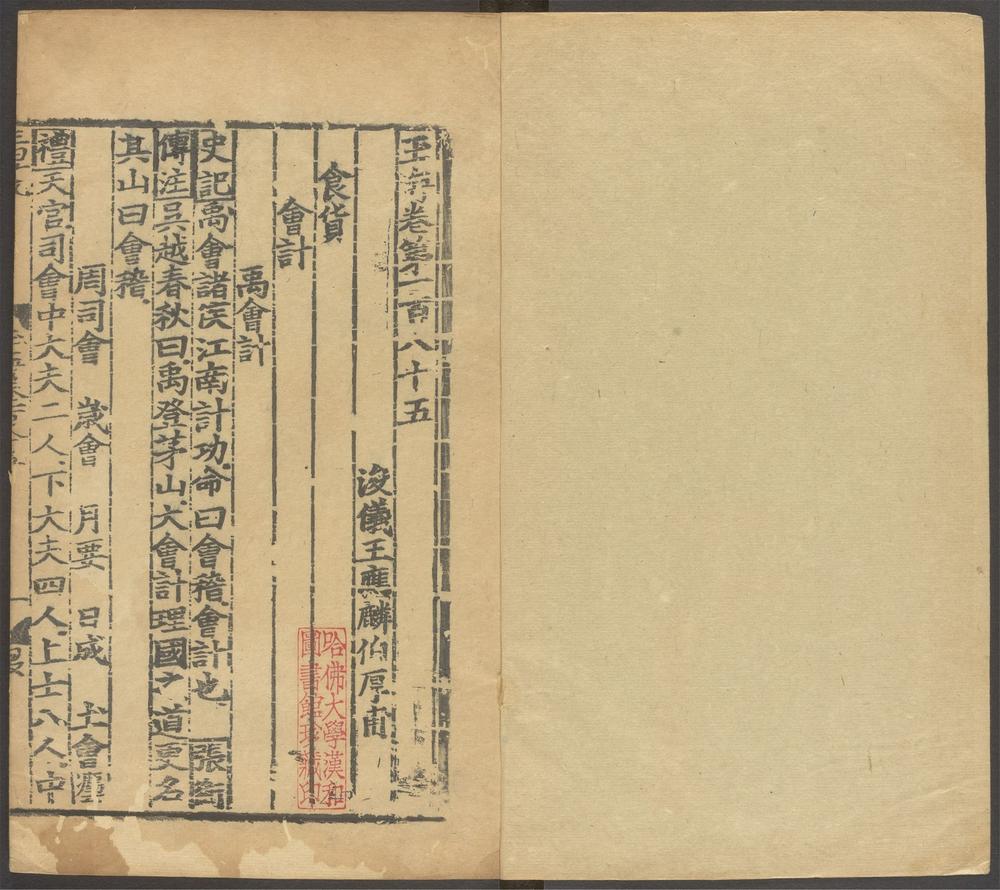 玉海卷第一百八十五
浚儀王應麟伯厚甫
食貨
會計
禹會計
史記禹會諸侯江南計功命曰會稽會計也 張衡
傳注吳越春秋曰禹登茅山大會計理國之道更名
其山曰會稽
周司會 歲會 月要 日成 土會灋
禮天官司會中大夫二人下大夫四人上士八人中
哈佛大學漢和
圖書館珍藏印